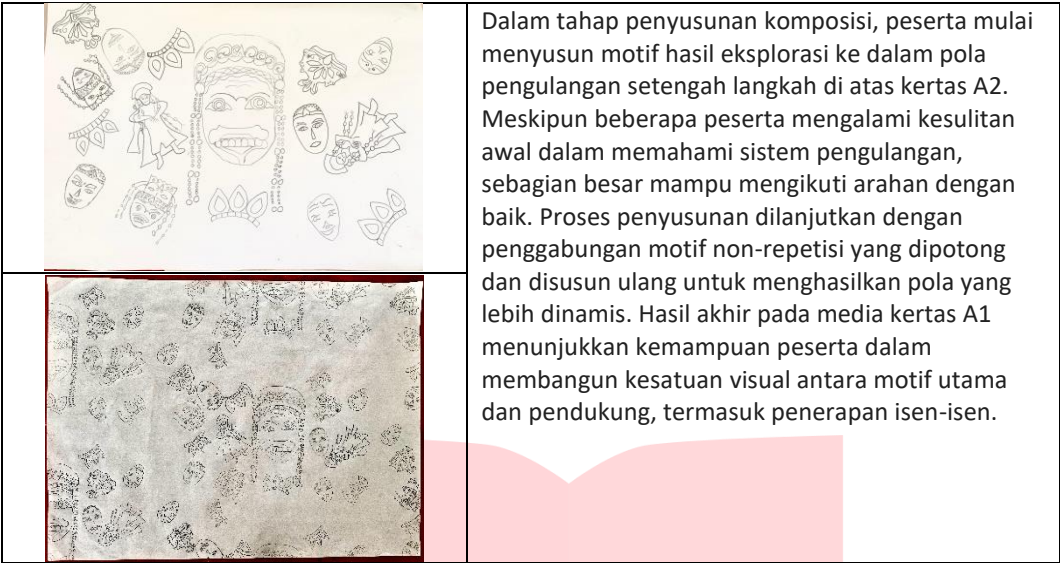 Dalam tahap penyusunan komposisi, peserta mulai
menyusun motif hasil eksplorasi ke dalam pola
pengulangan setengah langkah di atas kertas A2.
Meskipun beberapa peserta mengalami kesulitan
awal dalam memahami sistem pengulangan,
sebagian besar mampu mengikuti arahan dengan
baik. Proses penyusunan dilanjutkan dengan
penggabungan motif non-repetisi yang dipotong
dan disusun ulang untuk menghasilkan pola yang
lebih dinamis. Hasil akhir pada media kertas A1
menunjukkan kemampuan peserta dalam
membangun kesatuan visual antara motif utama
dan pendukung, termasuk penerapan isen-isen.